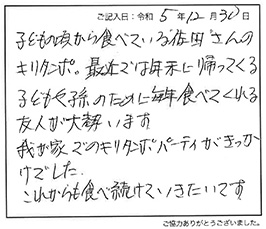 ご記入日：令和 5 年 12 月 30 日
子どもの頃から食べている佐田さんの
キリタンポ。最近では年末に帰ってくる
子どもや孫のために毎年食べてくれる
友人が大勢います
我が家でのキリタンポパーティがきっか
けでした。
これからも食べ続けていきたいです
ご協力ありがとうございました。